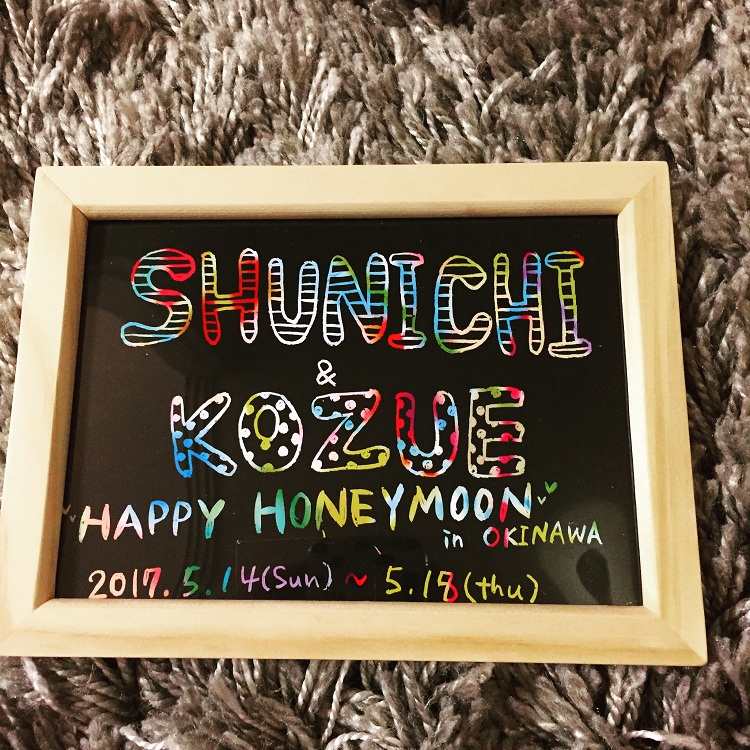 SHUNICHI
&
KOZUE
HAPPY HONEYMOON
in OKINAWA
2017. 5. 14(Sun) ~ 5. 18(thu)